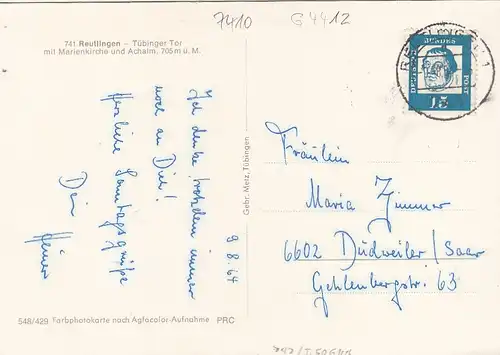 7410
G 4412
741 Reutlingen – Tübinger Tor
mit Marienkirche und Achalm. 705 m ü. M.
REUTLINGEN 1
DEUTSCHE BUNDESPOST
15
9.8.64
Ich denke trotzdem immer
noch an Dich!
Herzliche Sonntagsgrüße
Dein
Heiner
Gebr. Metz, Tübingen
Fräulein
Maria Zimmer
6602 Dudweiler/Saar
Gehlenbergstr. 63
548/429 Farbphotokarte nach Agfacolor-Aufnahme PRC